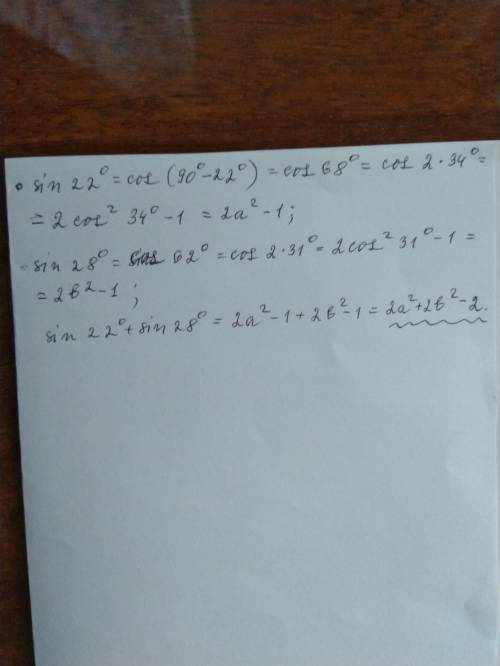 • sin 22° = cos (90° - 22°) = cos 68° = cos 2 · 34° =
= 2 cos² 34° - 1 = 2a² - 1;
- sin 28° = cos 62° = cos 2 · 31° = 2cos² 31° - 1 =
= 2b² - 1 ;
sin 22° + sin 28° = 2a² - 1 + 2b² - 1 = 2a² + 2b² - 2.